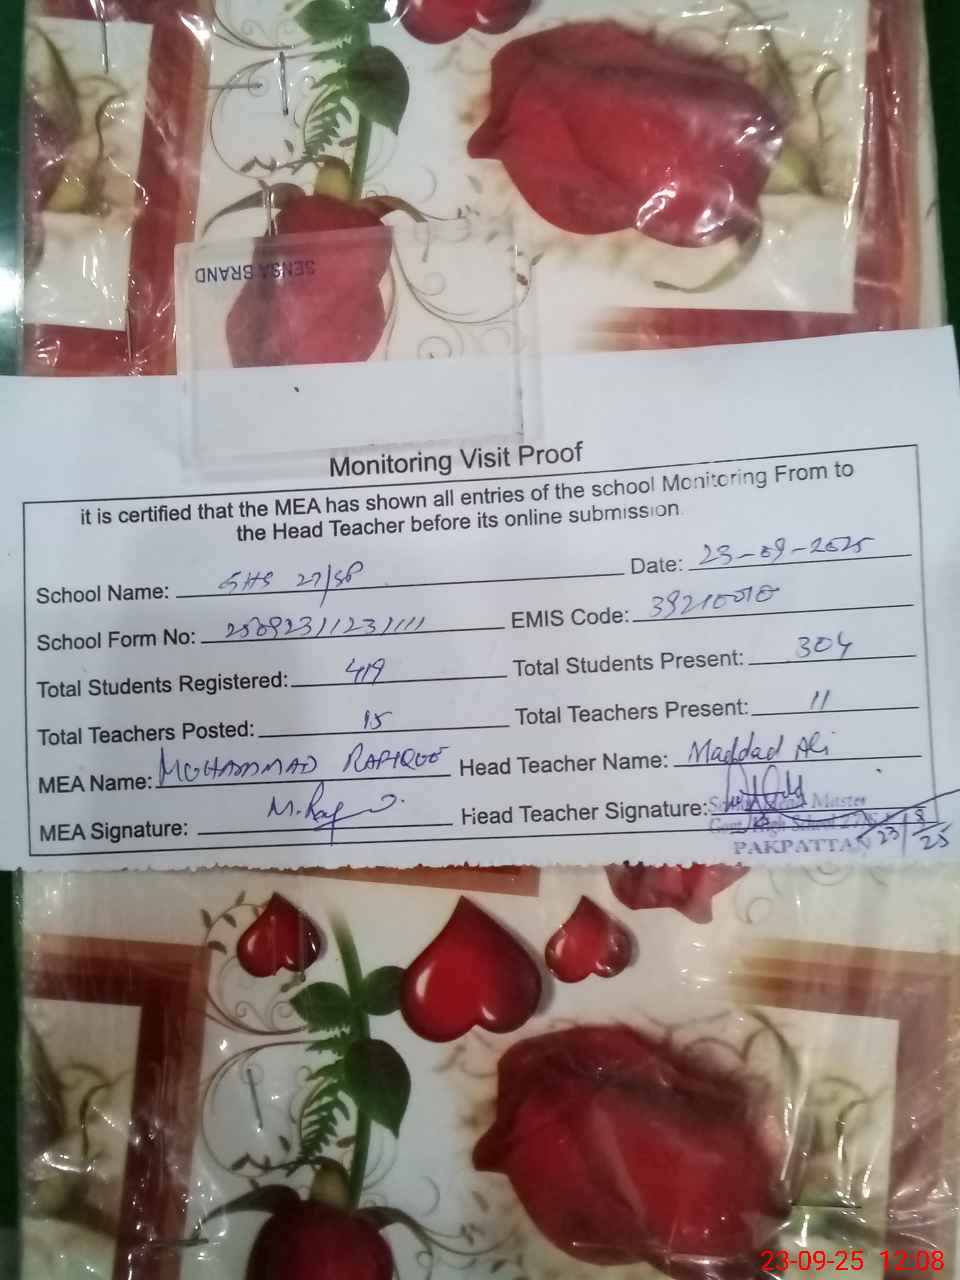 SENSA BRAND
Monitoring Visit Proof
it is certified that the MEA has shown all entries of the school Monitoring From to
the Head Teacher before its online submission.
School Name: GHS 27/SP Date: 23-09-2025
School Form No: 25092311231111 EMIS Code: 39210010
Total Students Registered: 419 Total Students Present: 304
Total Teachers Posted: 15 Total Teachers Present: 11
MEA Name: MOHAMMAD RAFIQUE Head Teacher Name: Maddad Ali
MEA Signature: M. Raf Head Teacher Signature:
Senior Head Master
Govt. High School 27/SP
PAKPATTAN 23/9/25
23-09-25 12:08